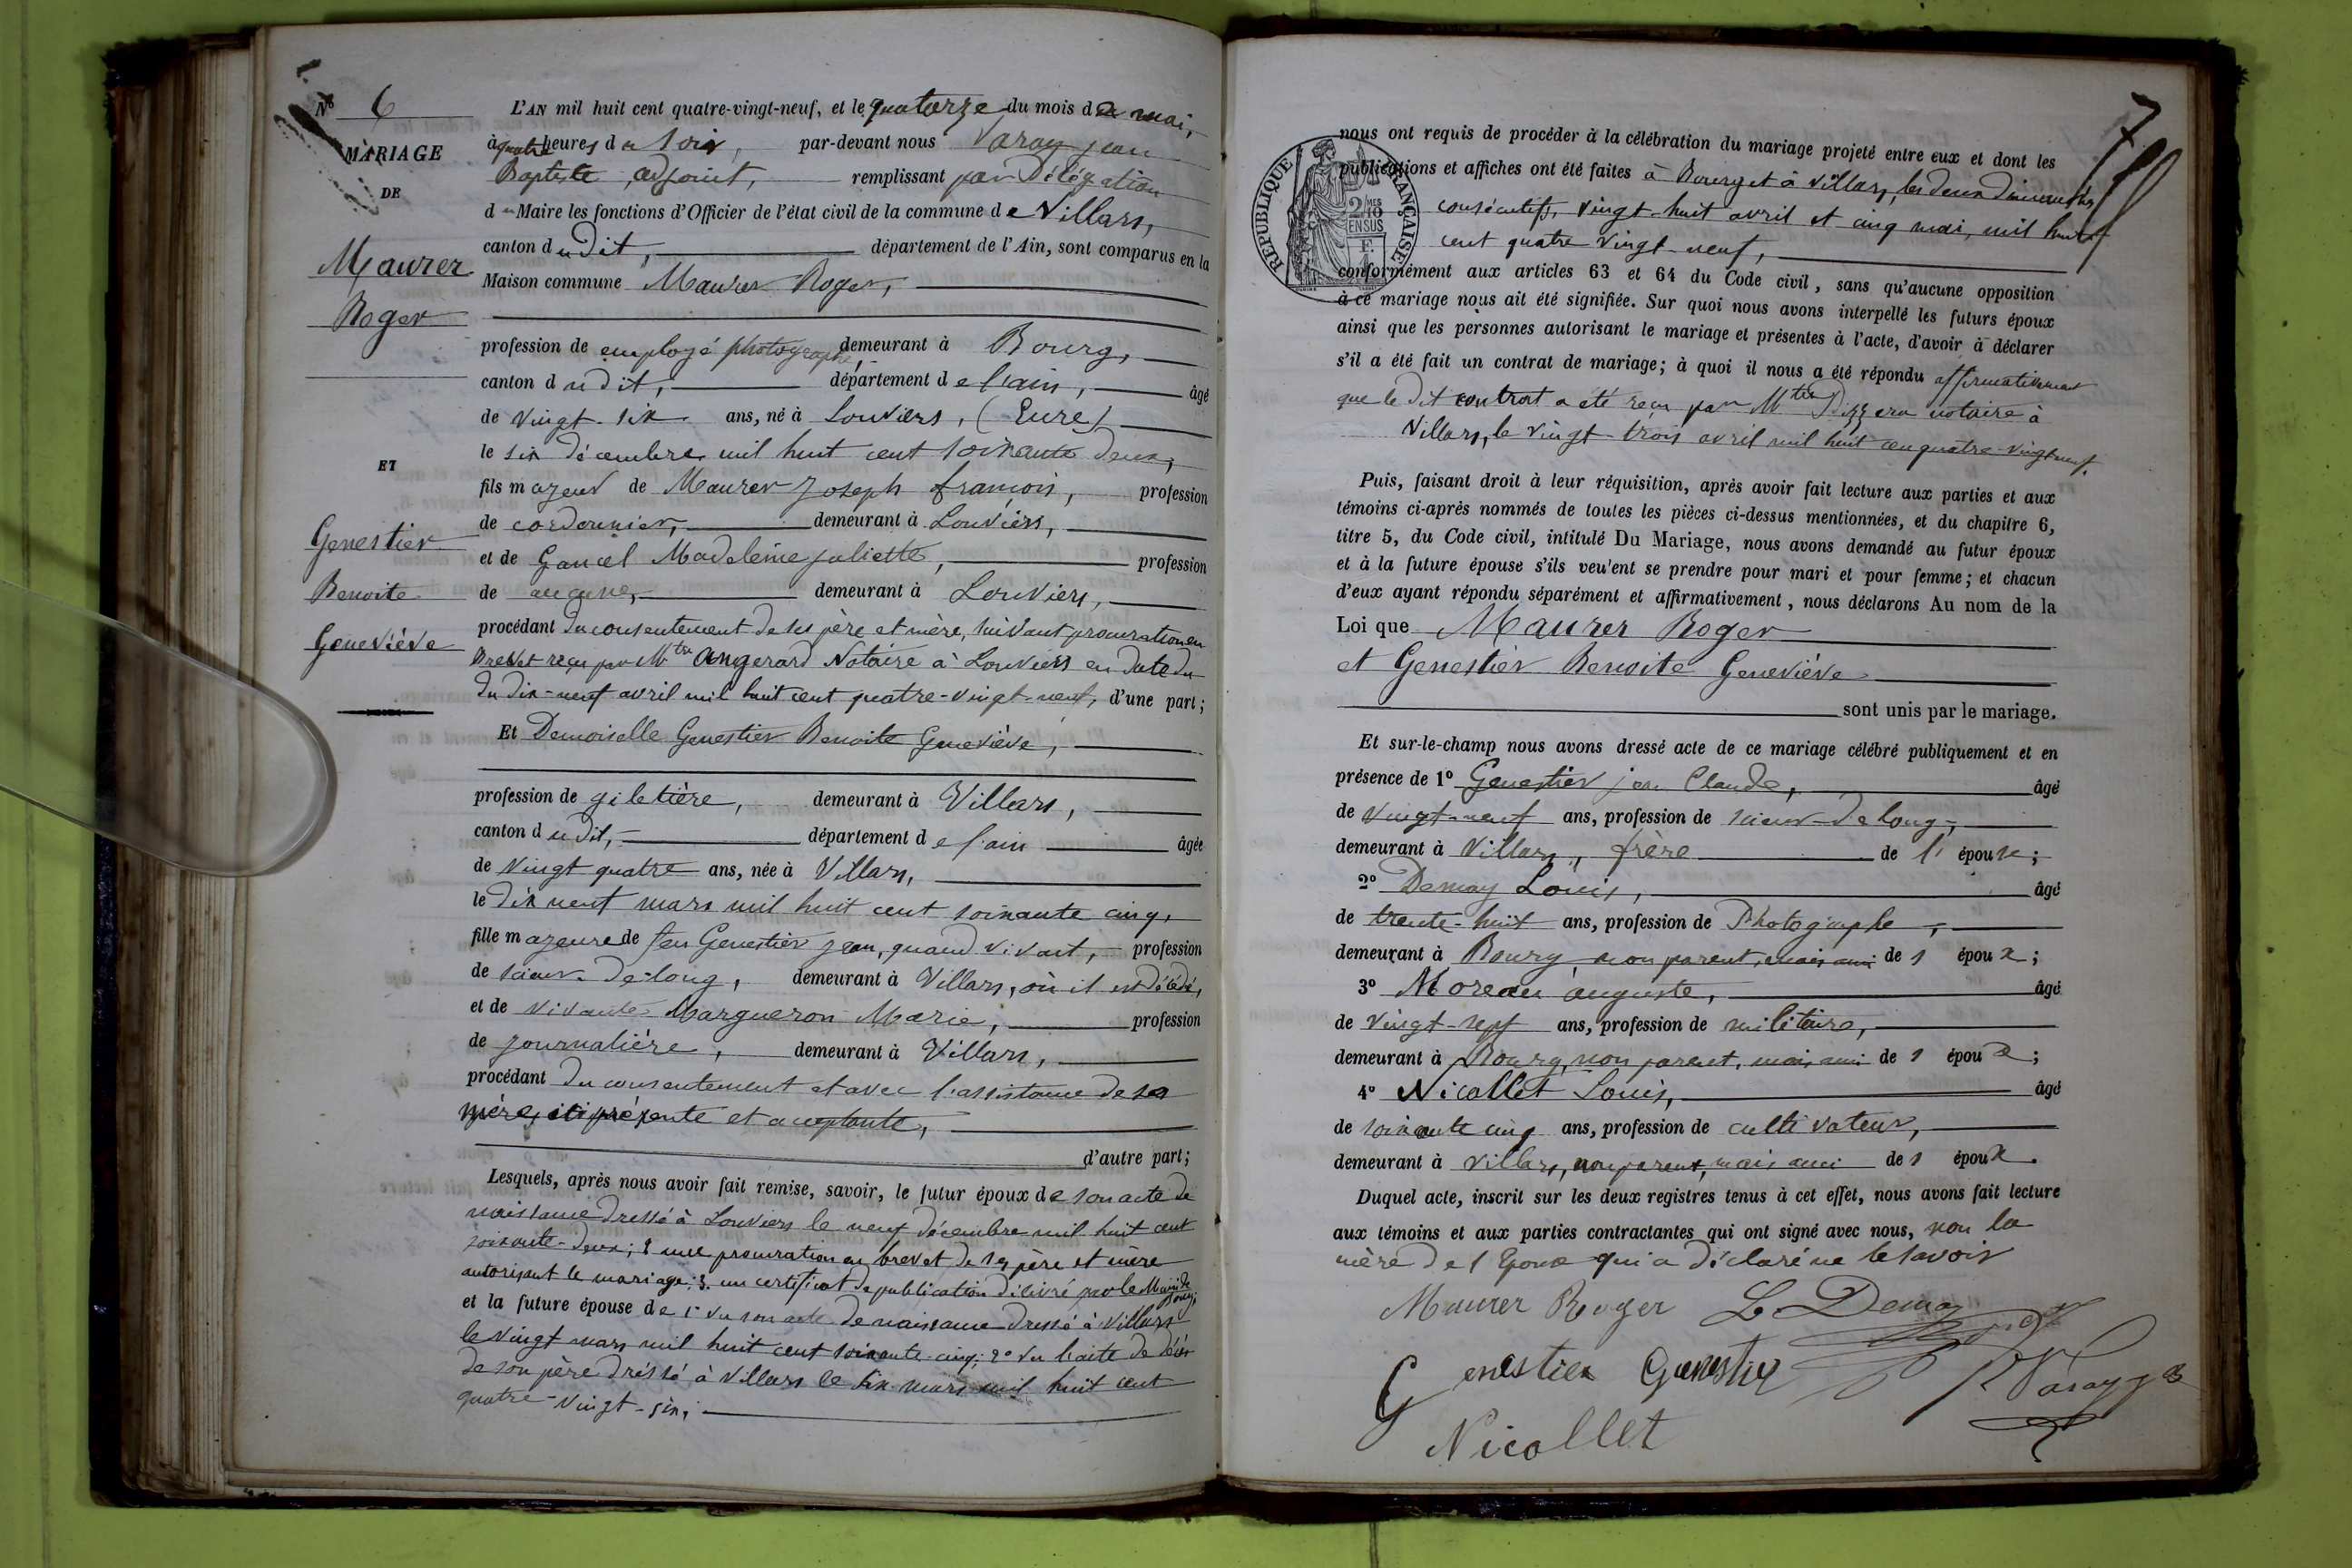 Nº 6
MARIAGE
DE
Maurer
Roger
ET
Genestier
Benoite
Geneviève
L'AN mil huit cent quatre-vingt-neuf, et le quatorze du mois de mai,
à quatre heures du soir, par-devant nous Varay jean
Baptiste, adjoint, remplissant par Délégation
du Maire les fonctions d'Officier de l'état civil de la commune de Villars,
canton dudit, département de l'Ain, sont comparus en la
Maison commune Maurer Roger,
profession de employé photographe, demeurant à Bourg,
canton dudit, département de l'ain, âgé
de vingt-six ans, né à Louviers, (Eure)
le six décembre mil huit cent soixante deux,
fils majeur de Maurer Joseph françois, profession
de cordonnier, demeurant à Louviers,
et de Gancel Madeleine juliette, profession
de aucune, demeurant à Louviers,
procédant du consentement de ses père et mère, suivant procuration en
Brevet reçu par Mtre Angerard Notaire à Louviers en date du
du dix-neuf avril mil huit cent quatre-vingt-neuf, d'une part;
Et Demoiselle Genestier Benoite Geneviève,
profession de giletière, demeurant à Villars,
canton dudit, département de l'ain âgée
de vingt quatre ans, née à Villars,
le dix neuf mars mil huit cent soixante cinq,
fille majeure de feu Genestier jean, quand vivant, profession
de scieur-de-long, demeurant à Villars, où il est décédé,
et de vivante Margueron Marie, profession
de journalière, demeurant à Villars,
procédant du consentement et avec l'assistance de sa
mère, ici présente et acceptante,
d'autre part;
Lesquels, après nous avoir fait remise, savoir, le futur époux de son acte de
naissance dressé à Louviers le neuf décembre mil huit cent
soixante-deux; 2 une procuration en brevet de ses père et mère
autorisant le mariage; 3. un certificat de publication délivré par le Maire de
Bourg;
et la future épouse de 1º du son acte de naissance dressé à Villars
le vingt mars mil huit cent soixante-cinq; 2º du l'acte de décès
de son père dressé à Villars le six mars mil huit cent
quatre-vingt-six;
7
RÉPUBLIQUE FRANÇAISE
2 MES
10
EN SUS
nous ont requis de procéder à la célébration du mariage projeté entre eux et dont les
publications et affiches ont été faites à Bourg et à Villars, les deux dimanches
consécutifs, vingt-huit avril et cinq mai, mil huit
cent quatre vingt-neuf,
conformément aux articles 63 et 64 du Code civil, sans qu'aucune opposition
à ce mariage nous ait été signifiée. Sur quoi nous avons interpellé les futurs époux
ainsi que les personnes autorisant le mariage et présentes à l'acte, d'avoir à déclarer
s'il a été fait un contrat de mariage; à quoi il nous a été répondu affirmativement
que le dit contrat a été reçu par Mtre notaire à
Villars, le vingt-trois avril mil huit cent quatre-vingt neuf.
Puis, faisant droit à leur réquisition, après avoir fait lecture aux parties et aux
témoins ci-après nommés de toutes les pièces ci-dessus mentionnées, et du chapitre 6,
titre 5, du Code civil, intitulé Du Mariage, nous avons demandé au futur époux
et à la future épouse s'ils veu'ent se prendre pour mari et pour femme; et chacun
d'eux ayant répondu séparément et affirmativement, nous déclarons Au nom de la
Loi que Maurer Roger
et Genestier Benoite Geneviève
sont unis par le mariage.
Et sur-le-champ nous avons dressé acte de ce mariage célébré publiquement et en
présence de 1º Genestier jean Claude, âgé
de vingt-neuf ans, profession de scieur-de long,
demeurant à Villars, frère de l' épouse;
2º Demay Louis, âgé
de trente-huit ans, profession de Photographe,
demeurant à Bourg, non parent, mais ami de l époux;
3º Moreau auguste, âgé
de vingt-sept ans, profession de militaire,
demeurant à Bourg, non parent, mais ami de l époux;
4º Nicollet Louis, âgé
de soixante cinq ans, profession de cultivateur,
demeurant à Villars, non parent, mais ami de l époux.
Duquel acte, inscrit sur les deux registres tenus à cet effet, nous avons fait lecture
aux témoins et aux parties contractantes qui ont signé avec nous, non la
mère de l'Epouse qui a déclaré ne le savoir
Maurer Roger L. Demay
Genestier Genestier Varay jB
Nicollet